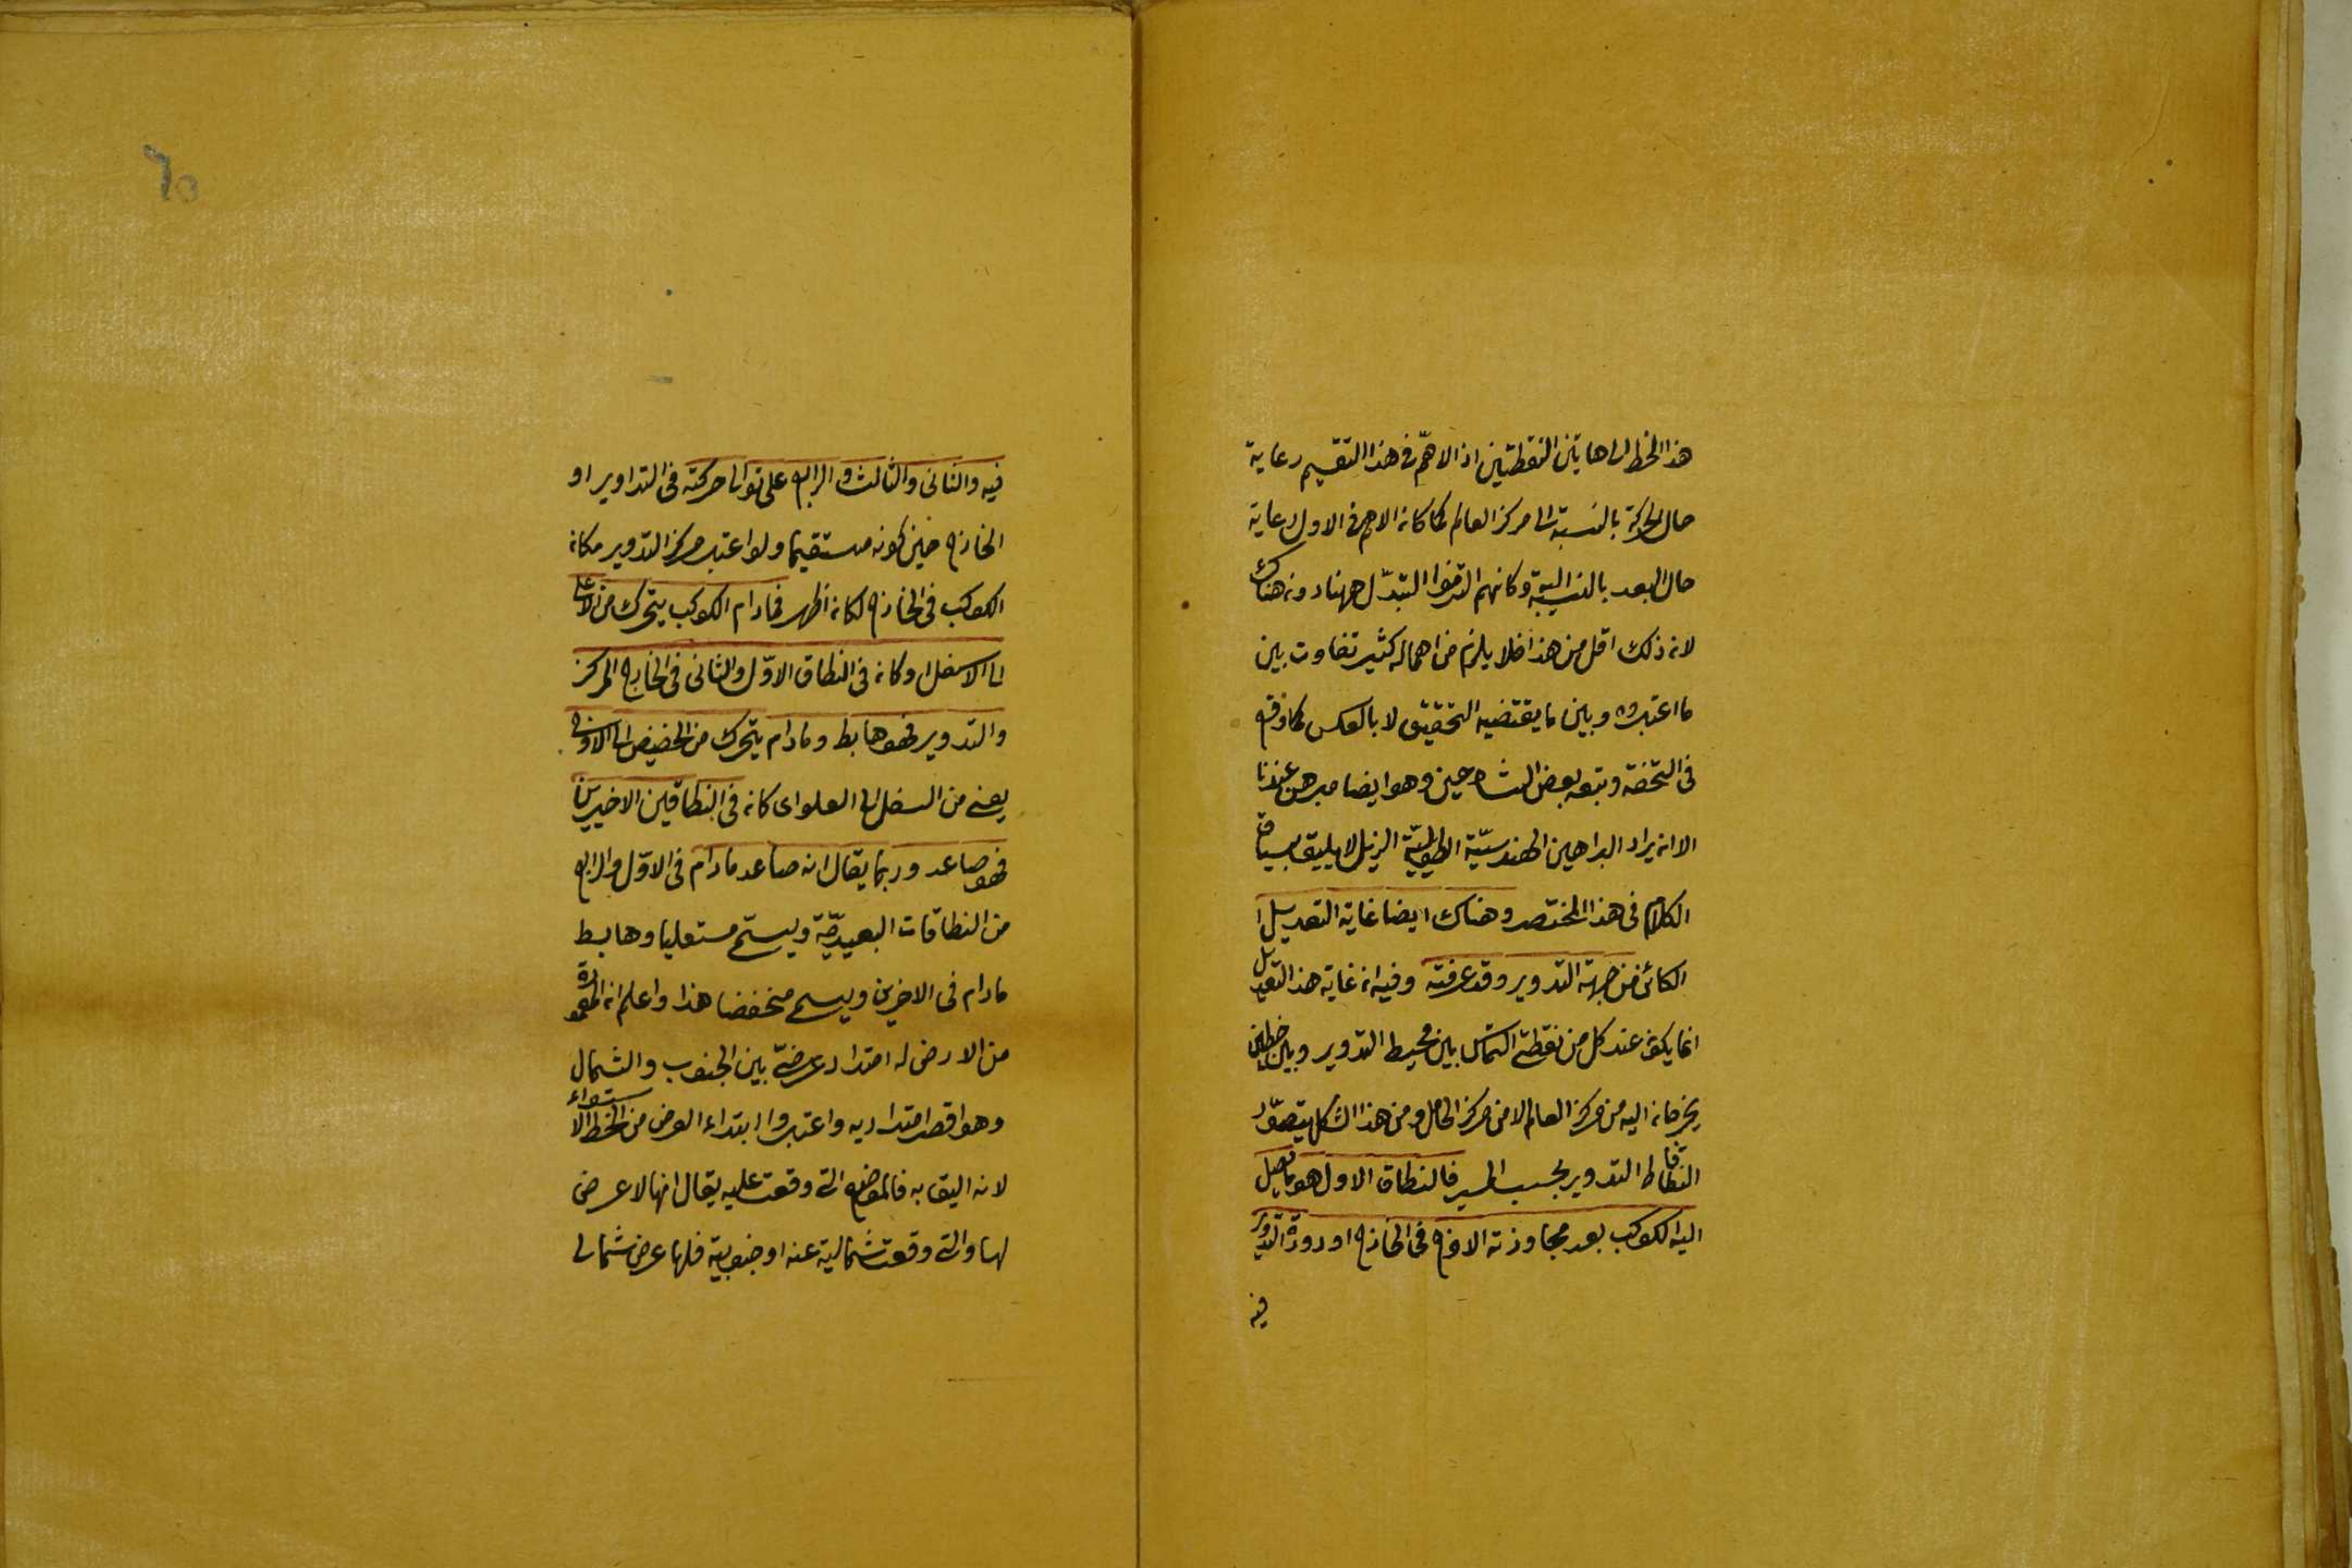 هذا الخط الى هاتين النقطتين اذ الاهمّ فى هذا التقسيم رعاية
حال الحركة بالنسبة الى مركز العالم كما كان الاهم فى الاول رعاية
حال البعد بالنسبة اليه وكانهم التزموا التبدّل ههنا دون هناك
لان ذلك اقل من هذا فلا يلزم من اهماله كثير تفاوت بين
ما اعتبروه وبين ما يقتضيه التحقيق لا بالعكس كما وقع
فى التحفة وتبعه بعض الشارحين وهو ايضا مبرهن عندنا
الا ان ايراد البراهين الهندسيّة الطويلة الذيل لا يليق بسياق
الكلام فى هذا المختصر وهناك ايضا غاية التعديل
الكائن من جهة التدوير وقد عرفته وفيه ان غاية هذا التعديل
انما يكون عند كل من نقطتى التماس بين محيط التدوير وبين خطين
يخرجان اليه من مركز العالم لا من مركز الحامل ومن هذا الشكل يتصوّر
نطاقا التدوير بحسب المسير فالنطاق الاول هو ما يصل
اليه الكوكب بعد مجاوزته الاوج فى الخارج او ذروة التدوير
فيه
٦٥
فيه والثانى والثالث والرابع على توالى حركته فى التداوير او
الخارج حين كونه مستقيما ولو اعتبر مركز التدوير مكان
الكوكب فى الخارج لكان اظهر فمادام الكوكب يتحرك من الاعلى
الى الاسفل او كان فى النطاق الاوّل والثانى فى الخارج المركز
والتدوير فهو هابط ومادام يتحرك من الحضيض الى الاوج
يعنى من السفل الى العلو اى كان فى النطاقين الاخيرين
فهو صاعد وربما يقال انه صاعد مادام فى الاوّل والرابع
من النطاقات البعيديّة ويسمّى مستعليا وهابط
مادام فى الاخرين ويسمى منخفضا هذا واعلم ان المعمورة
من الارض له امتداد عرضىّ بين الجنوب والشمال
وهو اقصر امتداديه واعتبروا ابتداء العرض من الخط الاستواء
لانه اليق به فالمواضع التى وقعت عليه يقال انها لا عرض
لها والتى وقعت شمالية عنه او جنوبية فلها عرض شمالى